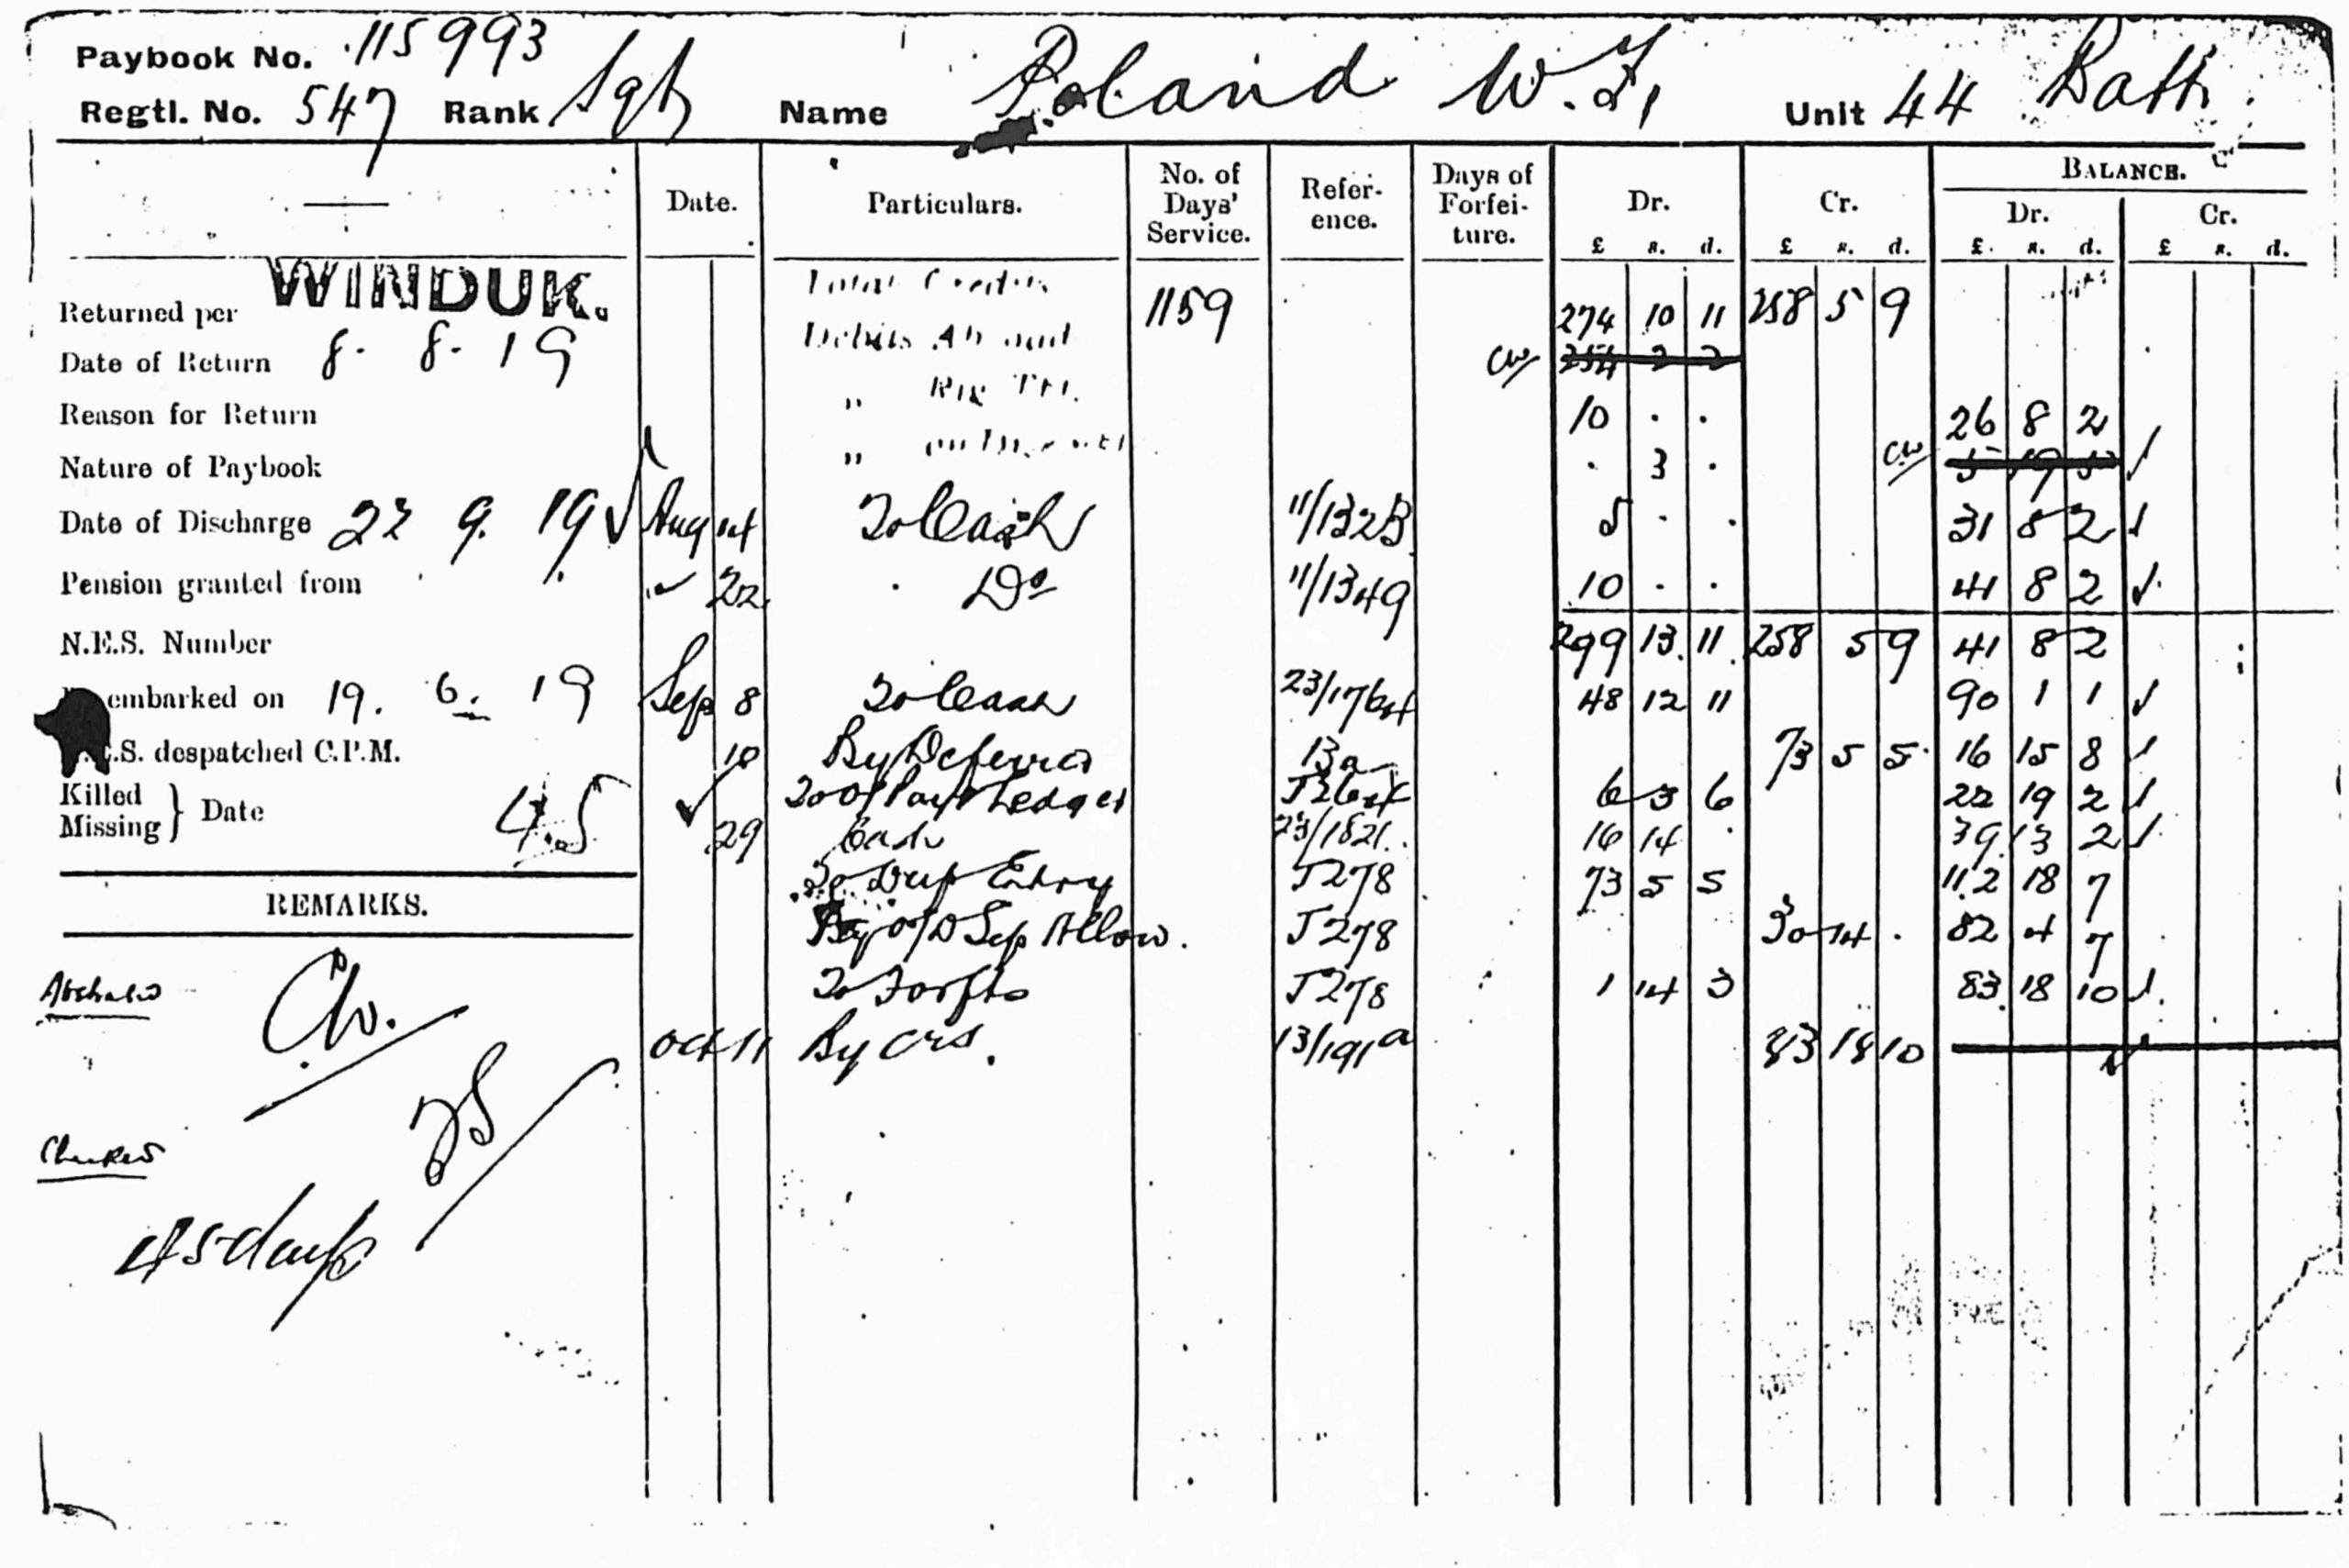 Paybook No. 115993
Regtl. No. 547 Rank Sgt Name Poland W. F. Unit 44 Battn.
Date. Particulars. No. of Days' Service. Reference. Days of Forfeiture. Dr. Cr. BALANCE. Dr. Cr.
£ s. d. £ s. d. £. s. d. £ s. d.
Returned per WINDUK.
Total Credits 1159 274 10 11 258 5 9
Date of Return 8. 8. 19
Debits Abroad cw 254 2 2
Reason for Return
" 10 . . 26 8 2
Nature of Paybook
" . 3 . cw
Date of Discharge 22 9. 19 Aug 14 To Cash 11/132B 5 . . 31 8 2
Pension granted from " 22 Do 11/1349 10 . . 41 8 2
N.E.S. Number 299 13 11 258 5 9 41 8 2
embarked on 19. 6. 19 Sep 8 To Cash 48 12 11 90 1 1
.S. despatched C.P.M. 18 By Deferred 13a 73 5 5 16 15 8
Killed Missing } Date 45
To O/Payt Ledger 6 3 6 22 19 2
29 Cash 23/1821 16 14 . 39 13 2
To Dup Entry J278 73 5 5 112 18 7
REMARKS.
By O/D Sep Allow. J278 30 14 . 82 4 7
To Forfts J278 1 14 3 83 18 10
Abstracted Cw.
Oct 11 By CRS. 13/191a 83 18 10
Checked
45 days